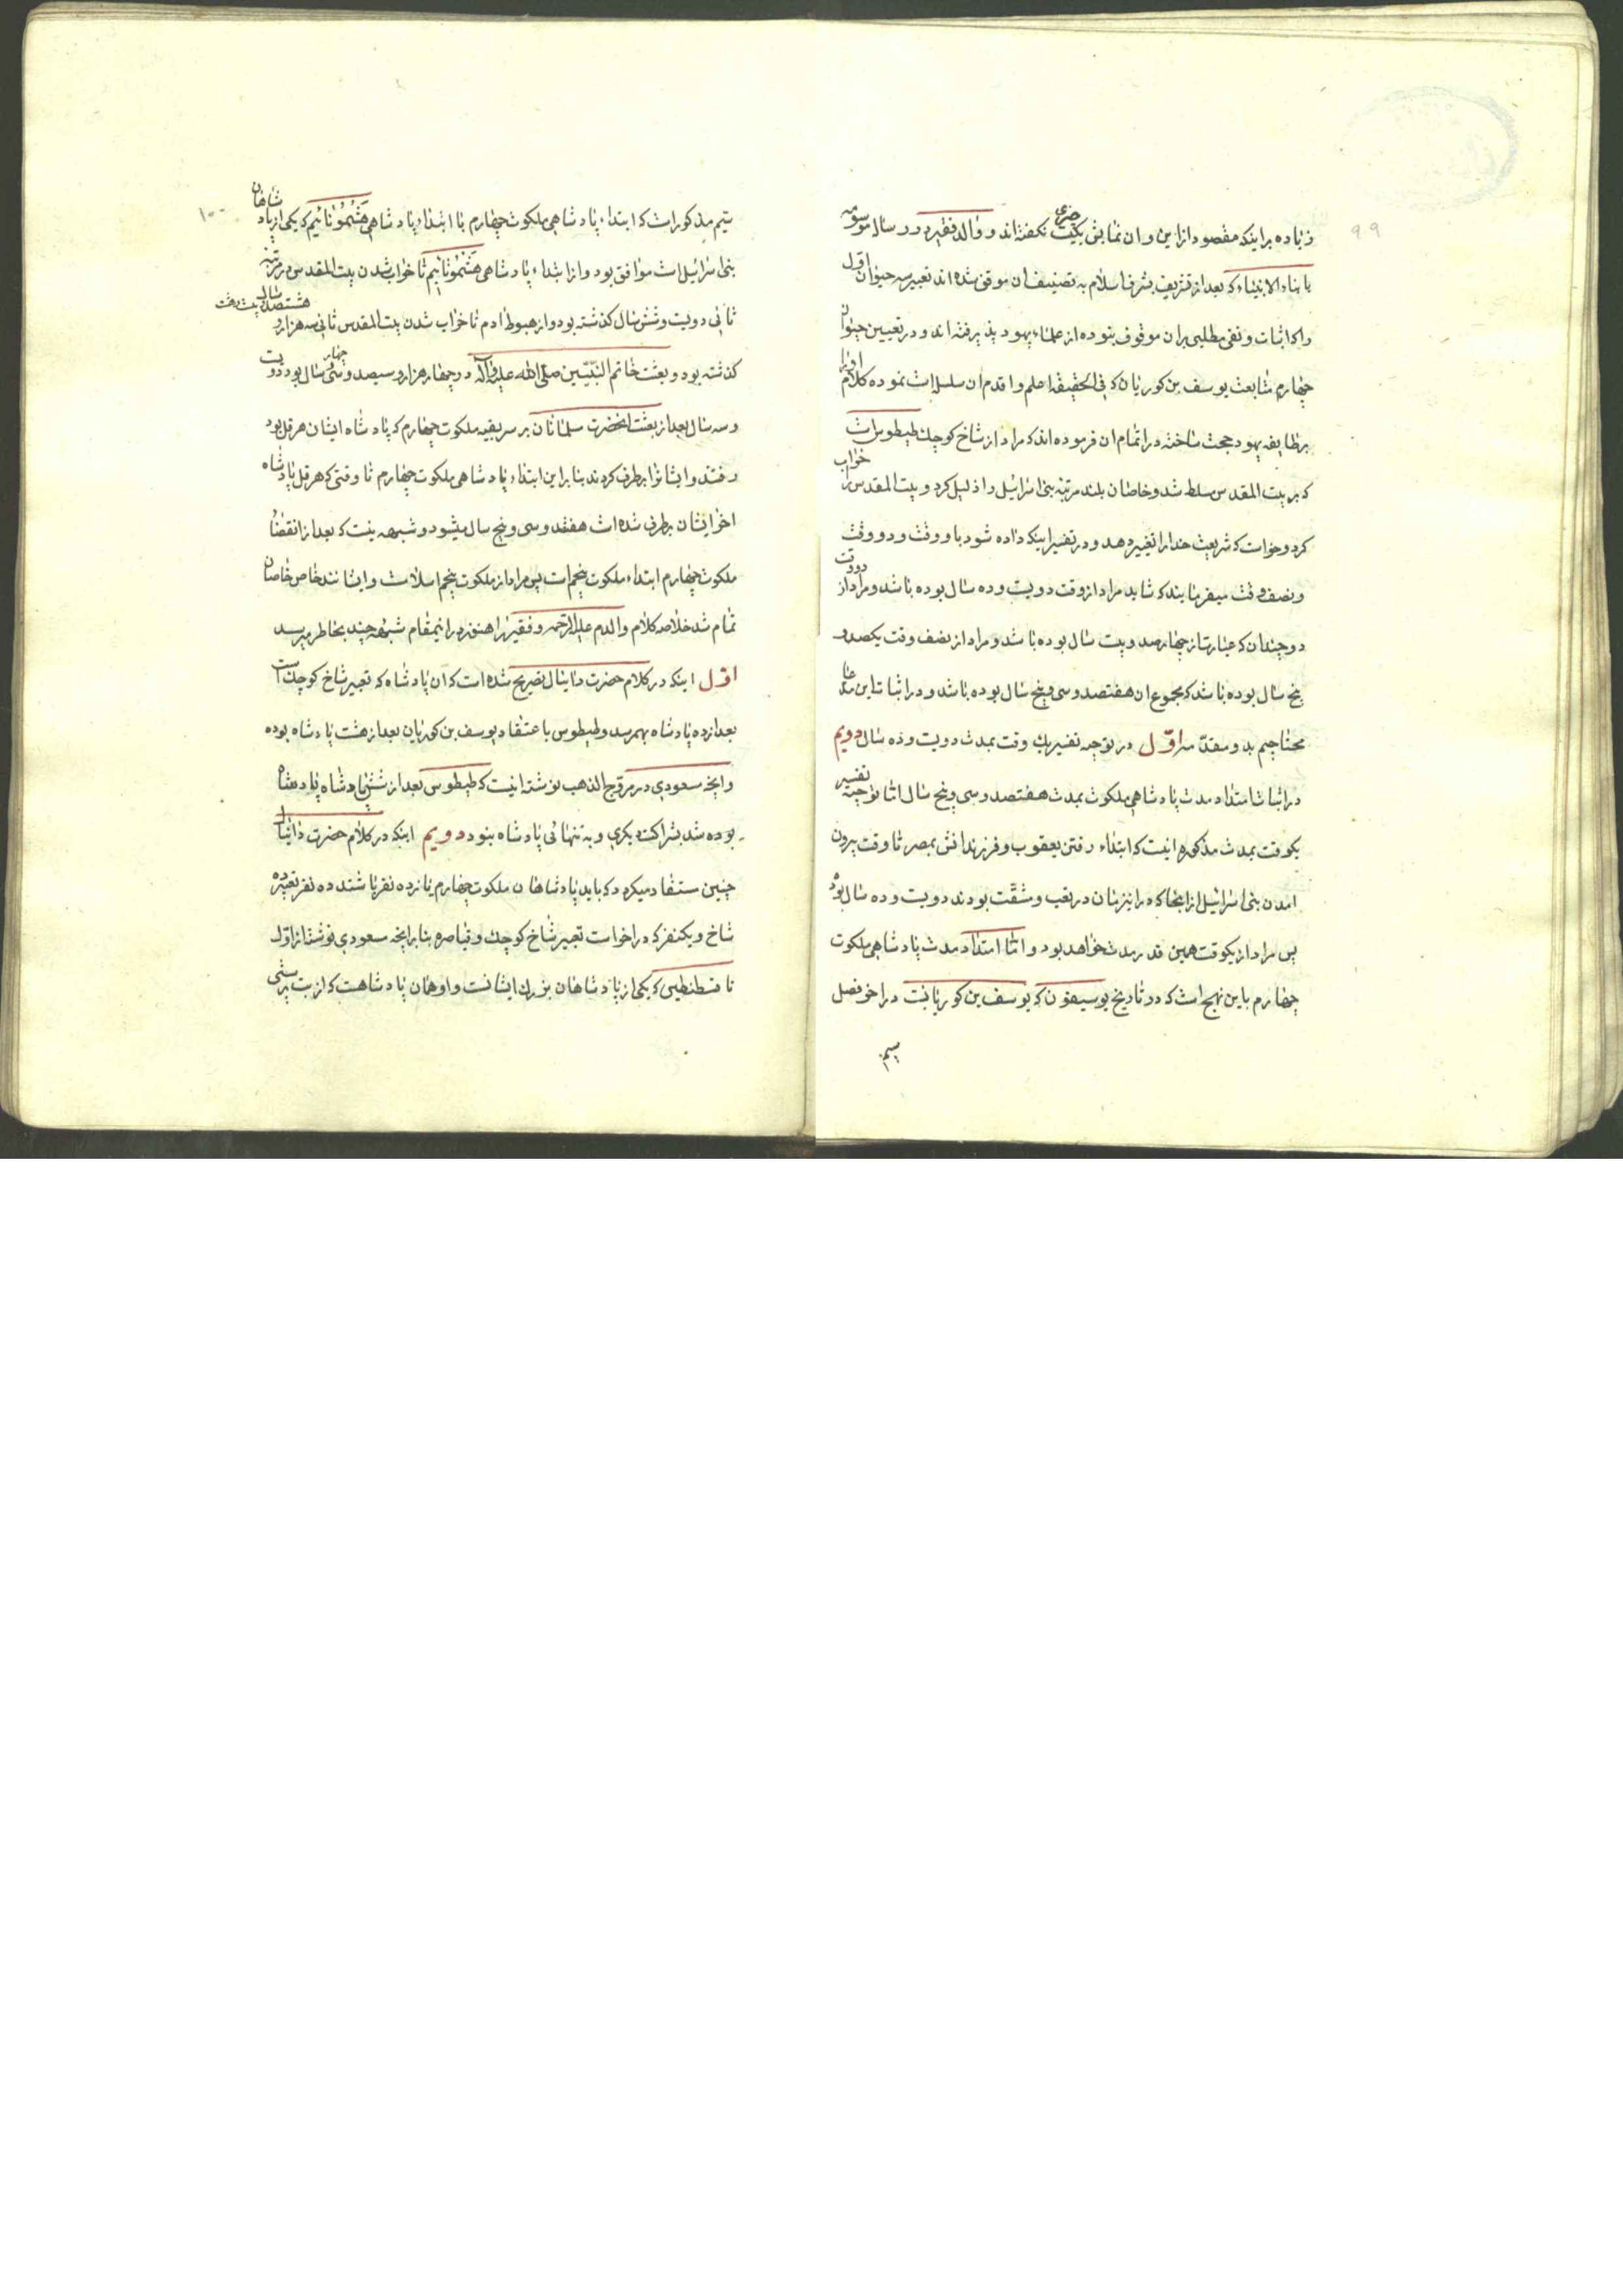 ۹۹
زیاده بر اینکه مقصود ازاین و ان نمایش یکیست حرفی نکفته‌اند و والد فقیر در رساله موسومه
بانباء الانبیاء که بعد از تشریف بشرف اسلام به تصنیف ان موفق شده‌اند تعبیر سه حیوان اول
را که اثبات و نفی مطلبی بران موقوف بنوده از علماء یهود پذیرفته‌اند و در تعیین حیوان
چهارم متابعت یوسف بن کوریان که فی الحقیقه اعلم و اقدم ان سلسله است نموده کلام اورا
بر طایفه یهود حجت ساخته در اتمام ان فرموده‌اند که مراد از شاخ کوچك طیطوس است
که بر بیت المقدس مسلط شد و خاصان بلند مرتبه بنی اسرائیل را ذلیل کرد و بیت المقدس را خراب
کرد و خواست که شریعت خدا را تغییر دهد و در تفسیر اینکه داده شود باو وقت و دو وقت
و نصف وقت میفرمایند که شاید مراد از وقت دویست و ده سال بوده باشد و مراد از دو وقت
دو چندان که عبارتاز چهارصد و بیست سال بوده باشد و مراد از نصف وقت یکصد و
پنج سال بوده باشد که مجموع ان هفتصد و سی و پنج سال بوده باشد و در اثبات این مدعا
محتاجیم بدو مقدّمه اوّل در توجیه تفسیر یك وقت بمدت دویست و ده سال دویم
در اثبات امتداد مدت پادشاهی ملکوت بمدت هفتصد و سی و پنج سال اما توجیه تفسیر
یکوقت بمدت مذکوره اینست که ابتداء رفتن یعقوب و فرزندانش بمصر تا وقت بیرون
امدن بنی اسرائیل از انجا که در اینزمان در تعب و مشقّت بودند دویست و ده سال بوده
پس مراد از یکوقت همین قدر مدت خواهد بود و امّا امتداد مدت پادشاهی ملکوت
چهارم باین نهج است که در تاریخ یوسیفون که یوسف بن کوریانست در اخر فصل
سیم
۱۰۰
سیم مذکور است که ابتداء پادشاهی ملکوت چهارم با ابتداء پادشاهی هَشْمُونائیم که یکی از پادشاهان
بنی اسرائیل است موافق بود و از ابتداء پادشاهی هشمونائیم تا خراب شدن بیت المقدس در مرتبه
ثانی دویست و شش سال کذشته بود و از هبوط ادم تا خراب شدن بیت المقدس ثانی سه هزار و هشتصد و بیست و هشت سال
کذشته بود و بعثت خاتم النبّیین صلّی الله علیه واله در چهار هزار و سیصد و سی و چهار سال بود دویست
و سه سال بعد از بعثت انحضرت سلمانان بر سر بقیه ملکوت چهارم که پادشاه ایشان هرقل بود
رفتند و ایشانرا برطرف کردند بنابراین ابتداء پادشاهی ملکوت چهارم تا وقتی که هرقل پادشاه
اخر ایشان برطرف شده است هفتصد و سی و پنج سال میشود و شبهه نیست که بعد از انقضاء
ملکوت چهارم ابتداء ملکوت پنجم است پس مراد از ملکوت پنجم اسلامست و ایشانند خاص خاصان
تمام شد خلاصه کلام والدم علیه الرحمه و فقیر را هنوز در اینمقام شبهه چند بخاطر میرسد
اوّل اینکه در کلام حضرت دانیال تصریح شده است که ان پادشاه که تعبیر شاخ کوچك است
بعد از ده پادشاه بهمرسد و طیطوس باعتقاد یوسف بن کوریان بعد از هشت پادشاه بوده
وانچه مسعودی در مروج الذهب نوشته اینست که طیطوس بعد از شش پادشاه پادشاه
بوده شد بشراکت دیکری و به تنهائی پادشاه بنود دویم اینکه در کلام حضرت دانیال
چنین مستفاد میکردد که باید پادشاهان ملکوت چهارم یازده نفر باشند ده نفر تعبیر ده
شاخ و یکنفر که در اخراست تعبیر شاخ کوچك و قیاصره بنابرانچه مسعودی نوشته از اول
تا قسطنطین که یکی از پادشاهان بزرك ایشانست و او همان پادشاهست که از بت پرستی